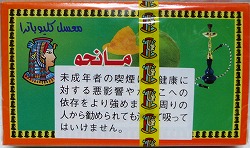 معسل كليوباترا
مانجو
未成年者の喫煙は、健康に
対する悪影響やたばこへの
依存をより強めます。周りの
人から勧められても決して吸って
はいけません。